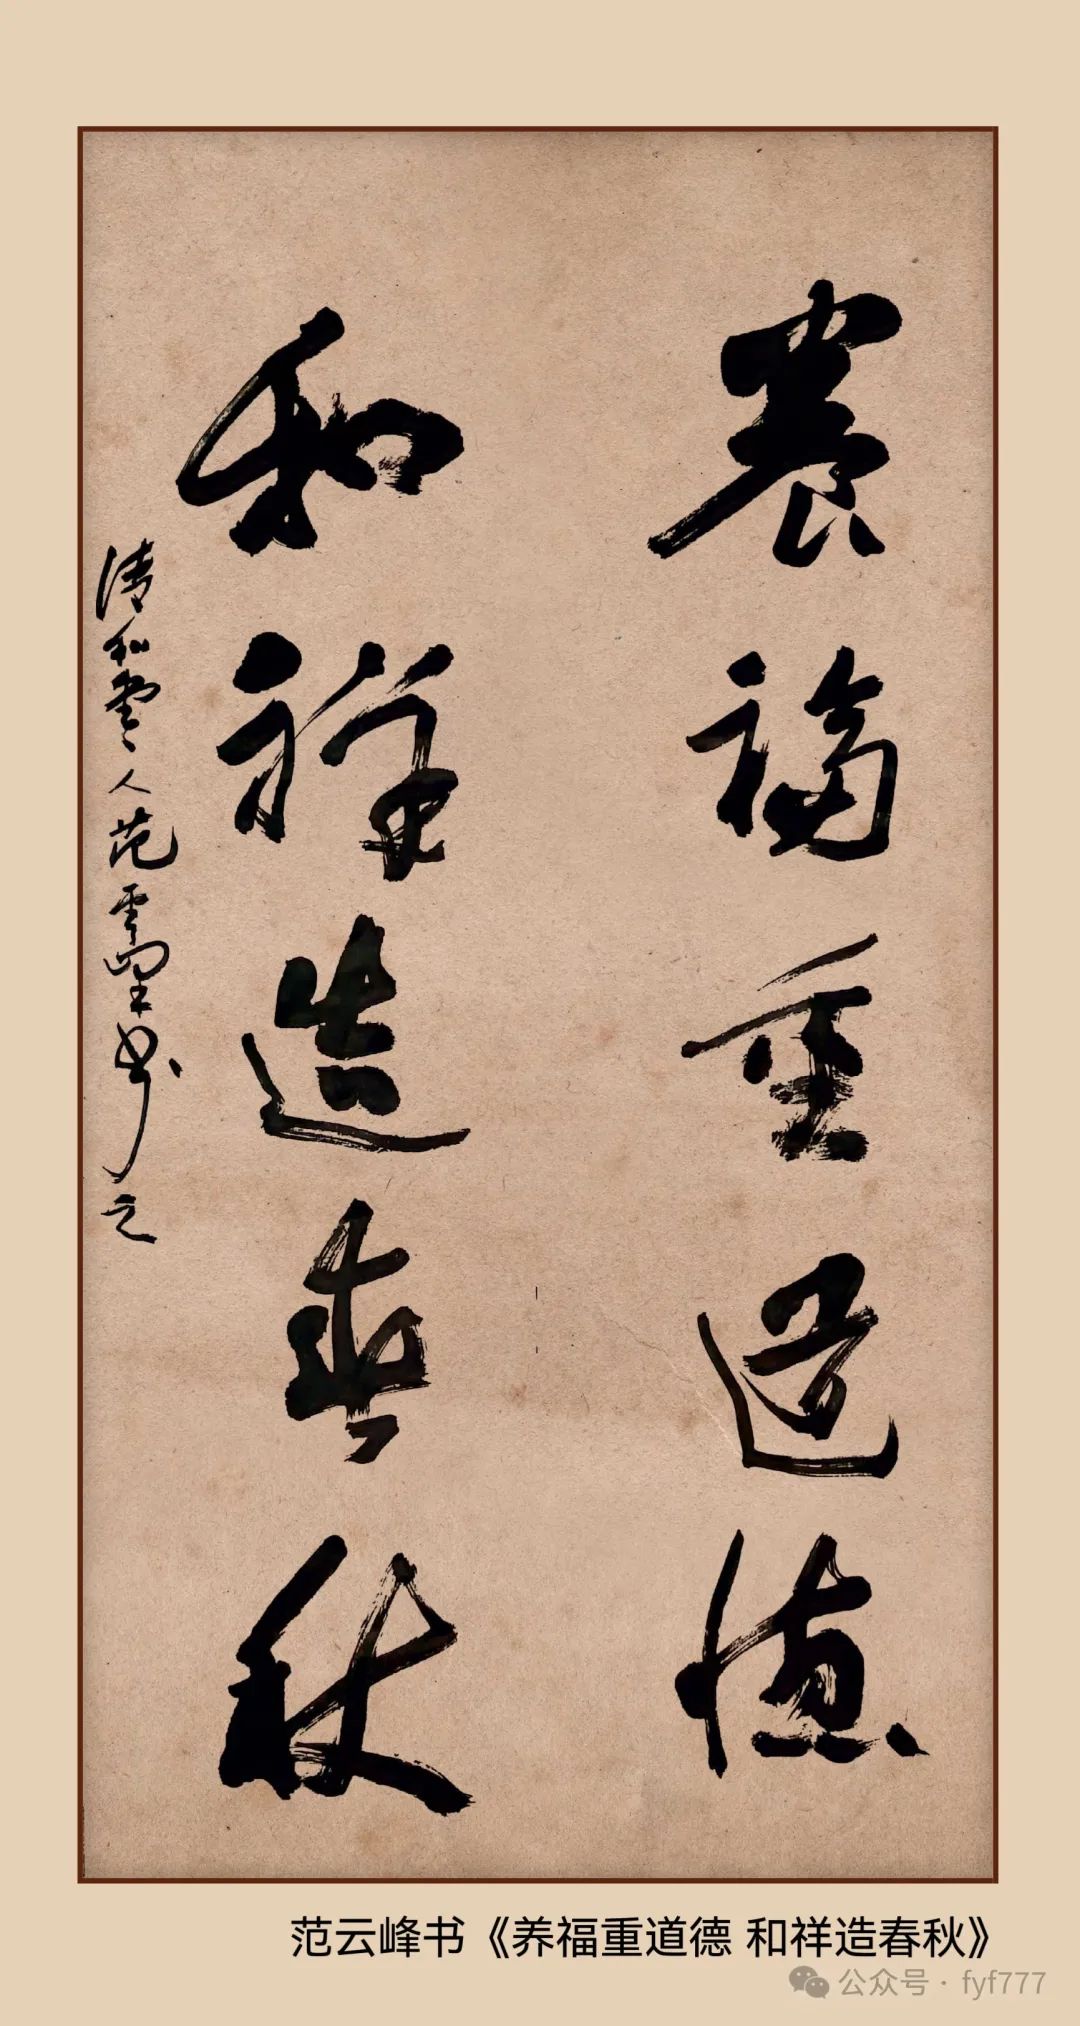 養福重道德
和祥造春秋
清和堂人范雲峰书之
范云峰书《养福重道德 和祥造春秋》
公众号 · fyf777